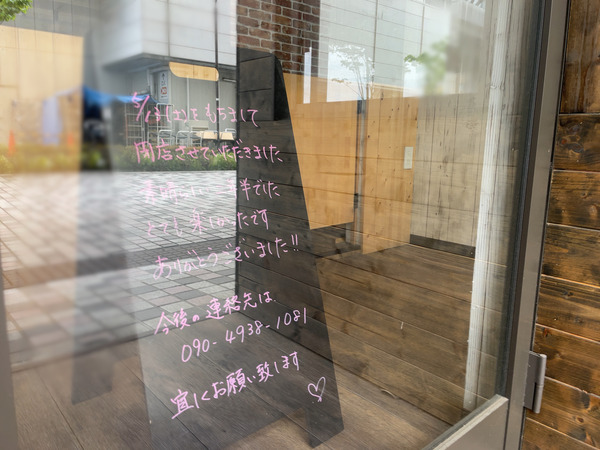 (土)をもちまして
閉店させていただきました
素晴らしい 半でした
とても楽しかったです
ありがとうございました!!
今後の連絡先は
090-4938-1081
宜しくお願い致します♡